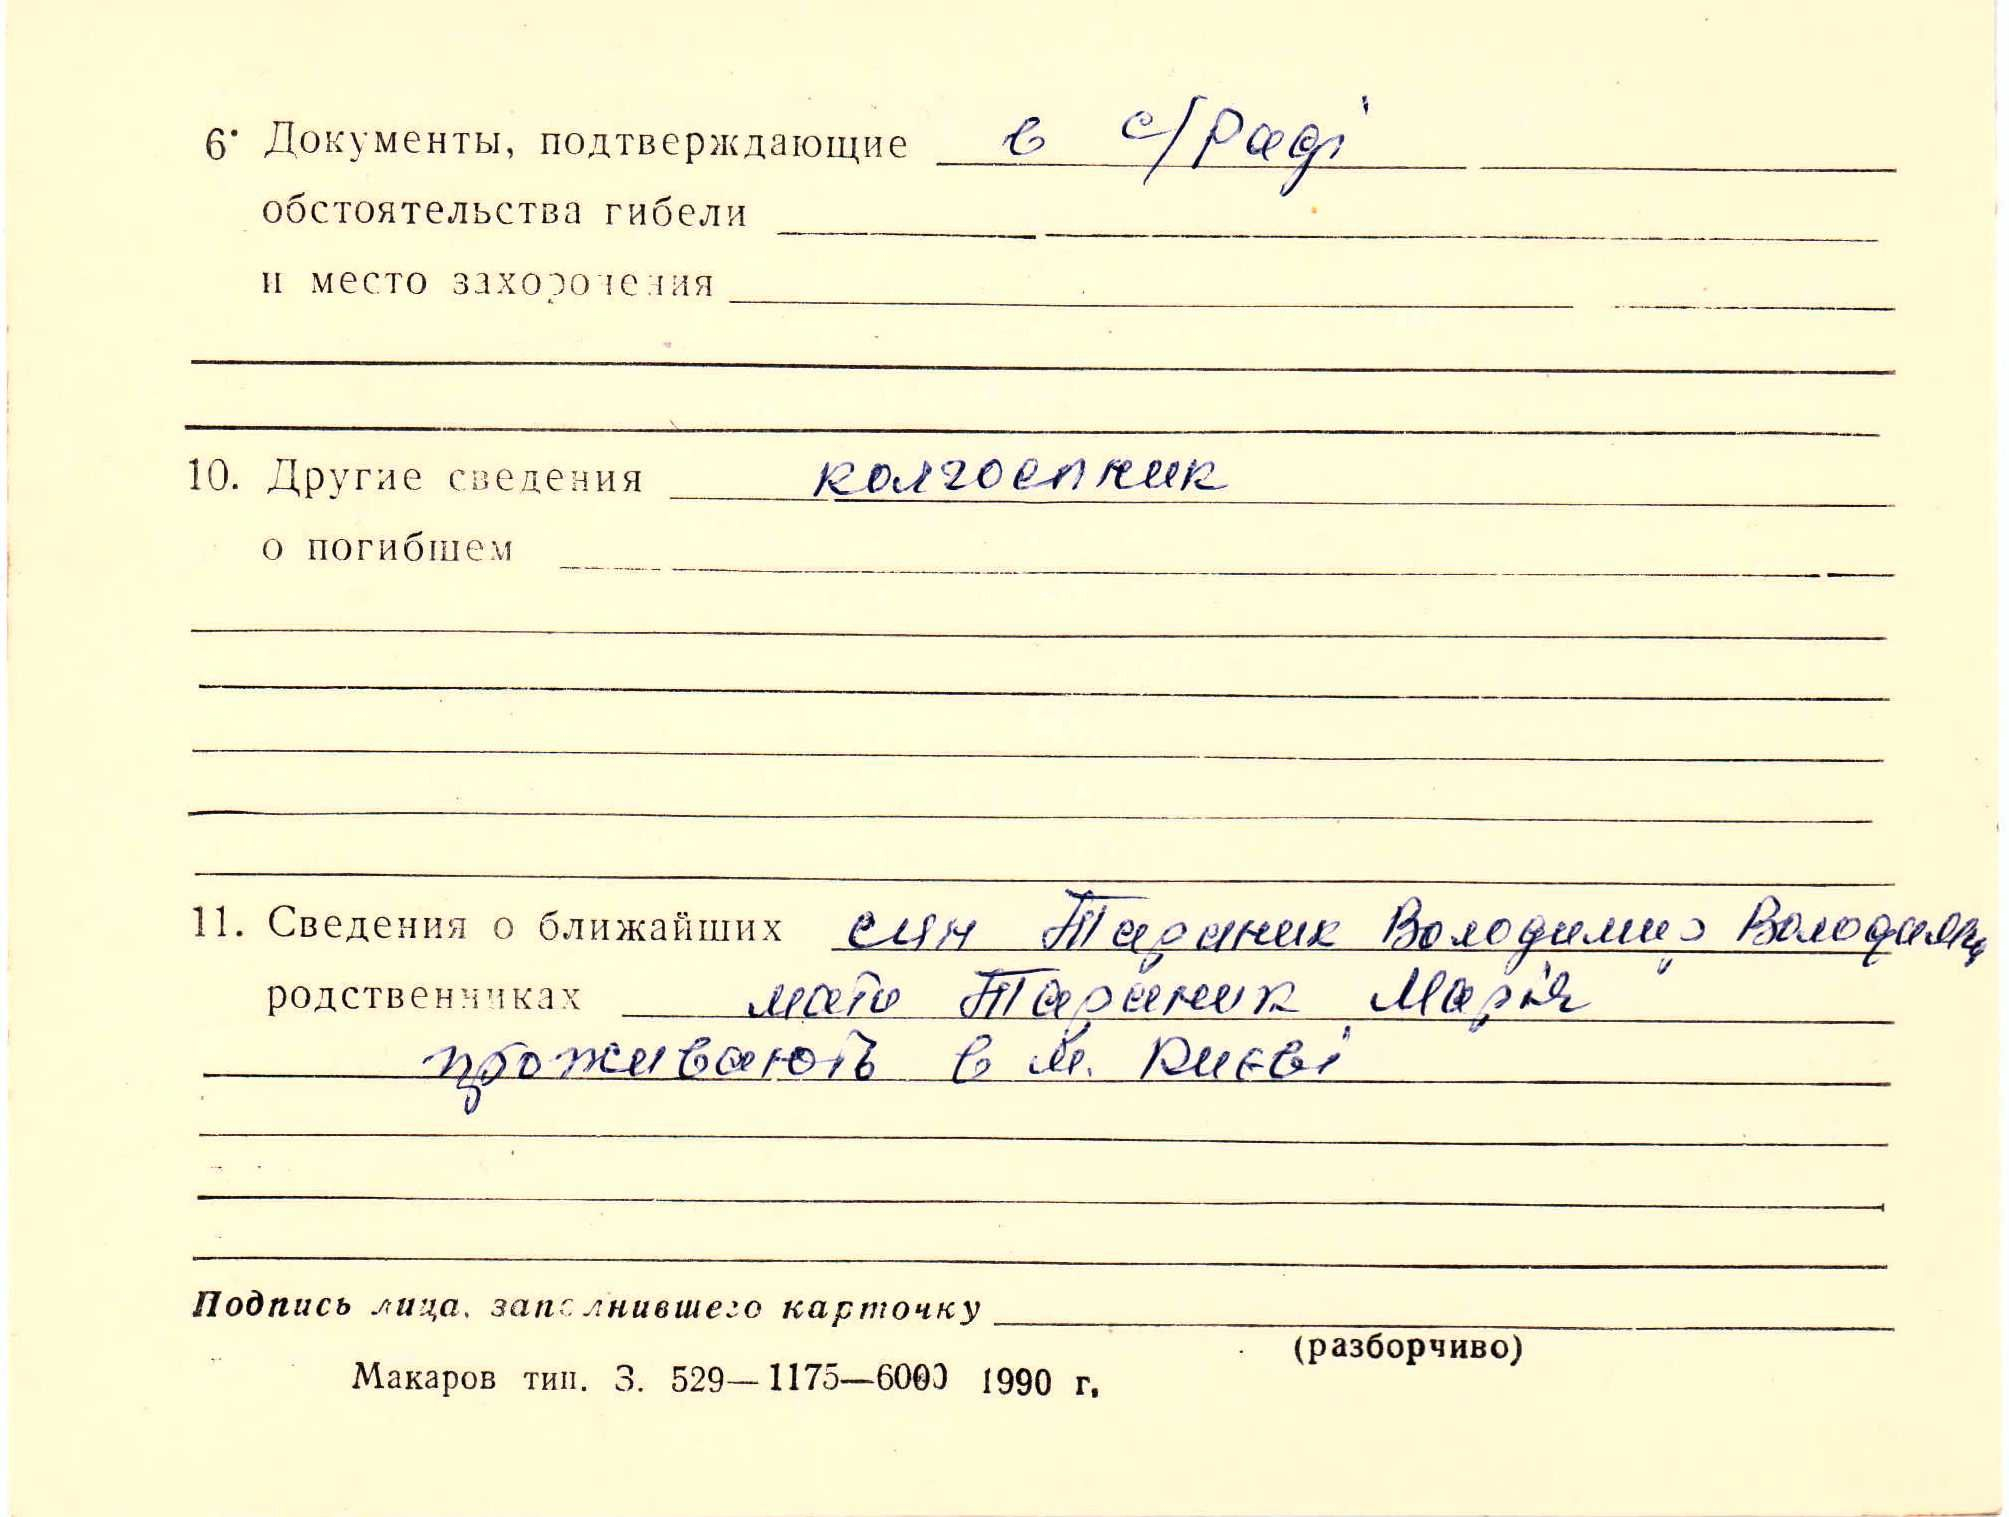 6. Документы, подтверждающие в с/раді
обстоятельства гибели
и место захоронения
10. Другие сведения колгоспник
о погибшем
11. Сведения о ближайших син Тараник Володимир
родственниках мати Тараник Марія
проживають в м. Києві
Подпись лица, заполнившего карточку
(разборчиво)
Макаров тип. З. 529—1175—6000 1990 г.